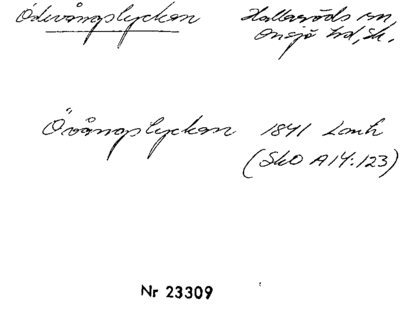 Ödevångslyckan Hallaröds sn,
Onsjö hd, Sk.
Övångslyckan 1841 Lmh
(SkO A14:123)
Nr 23309